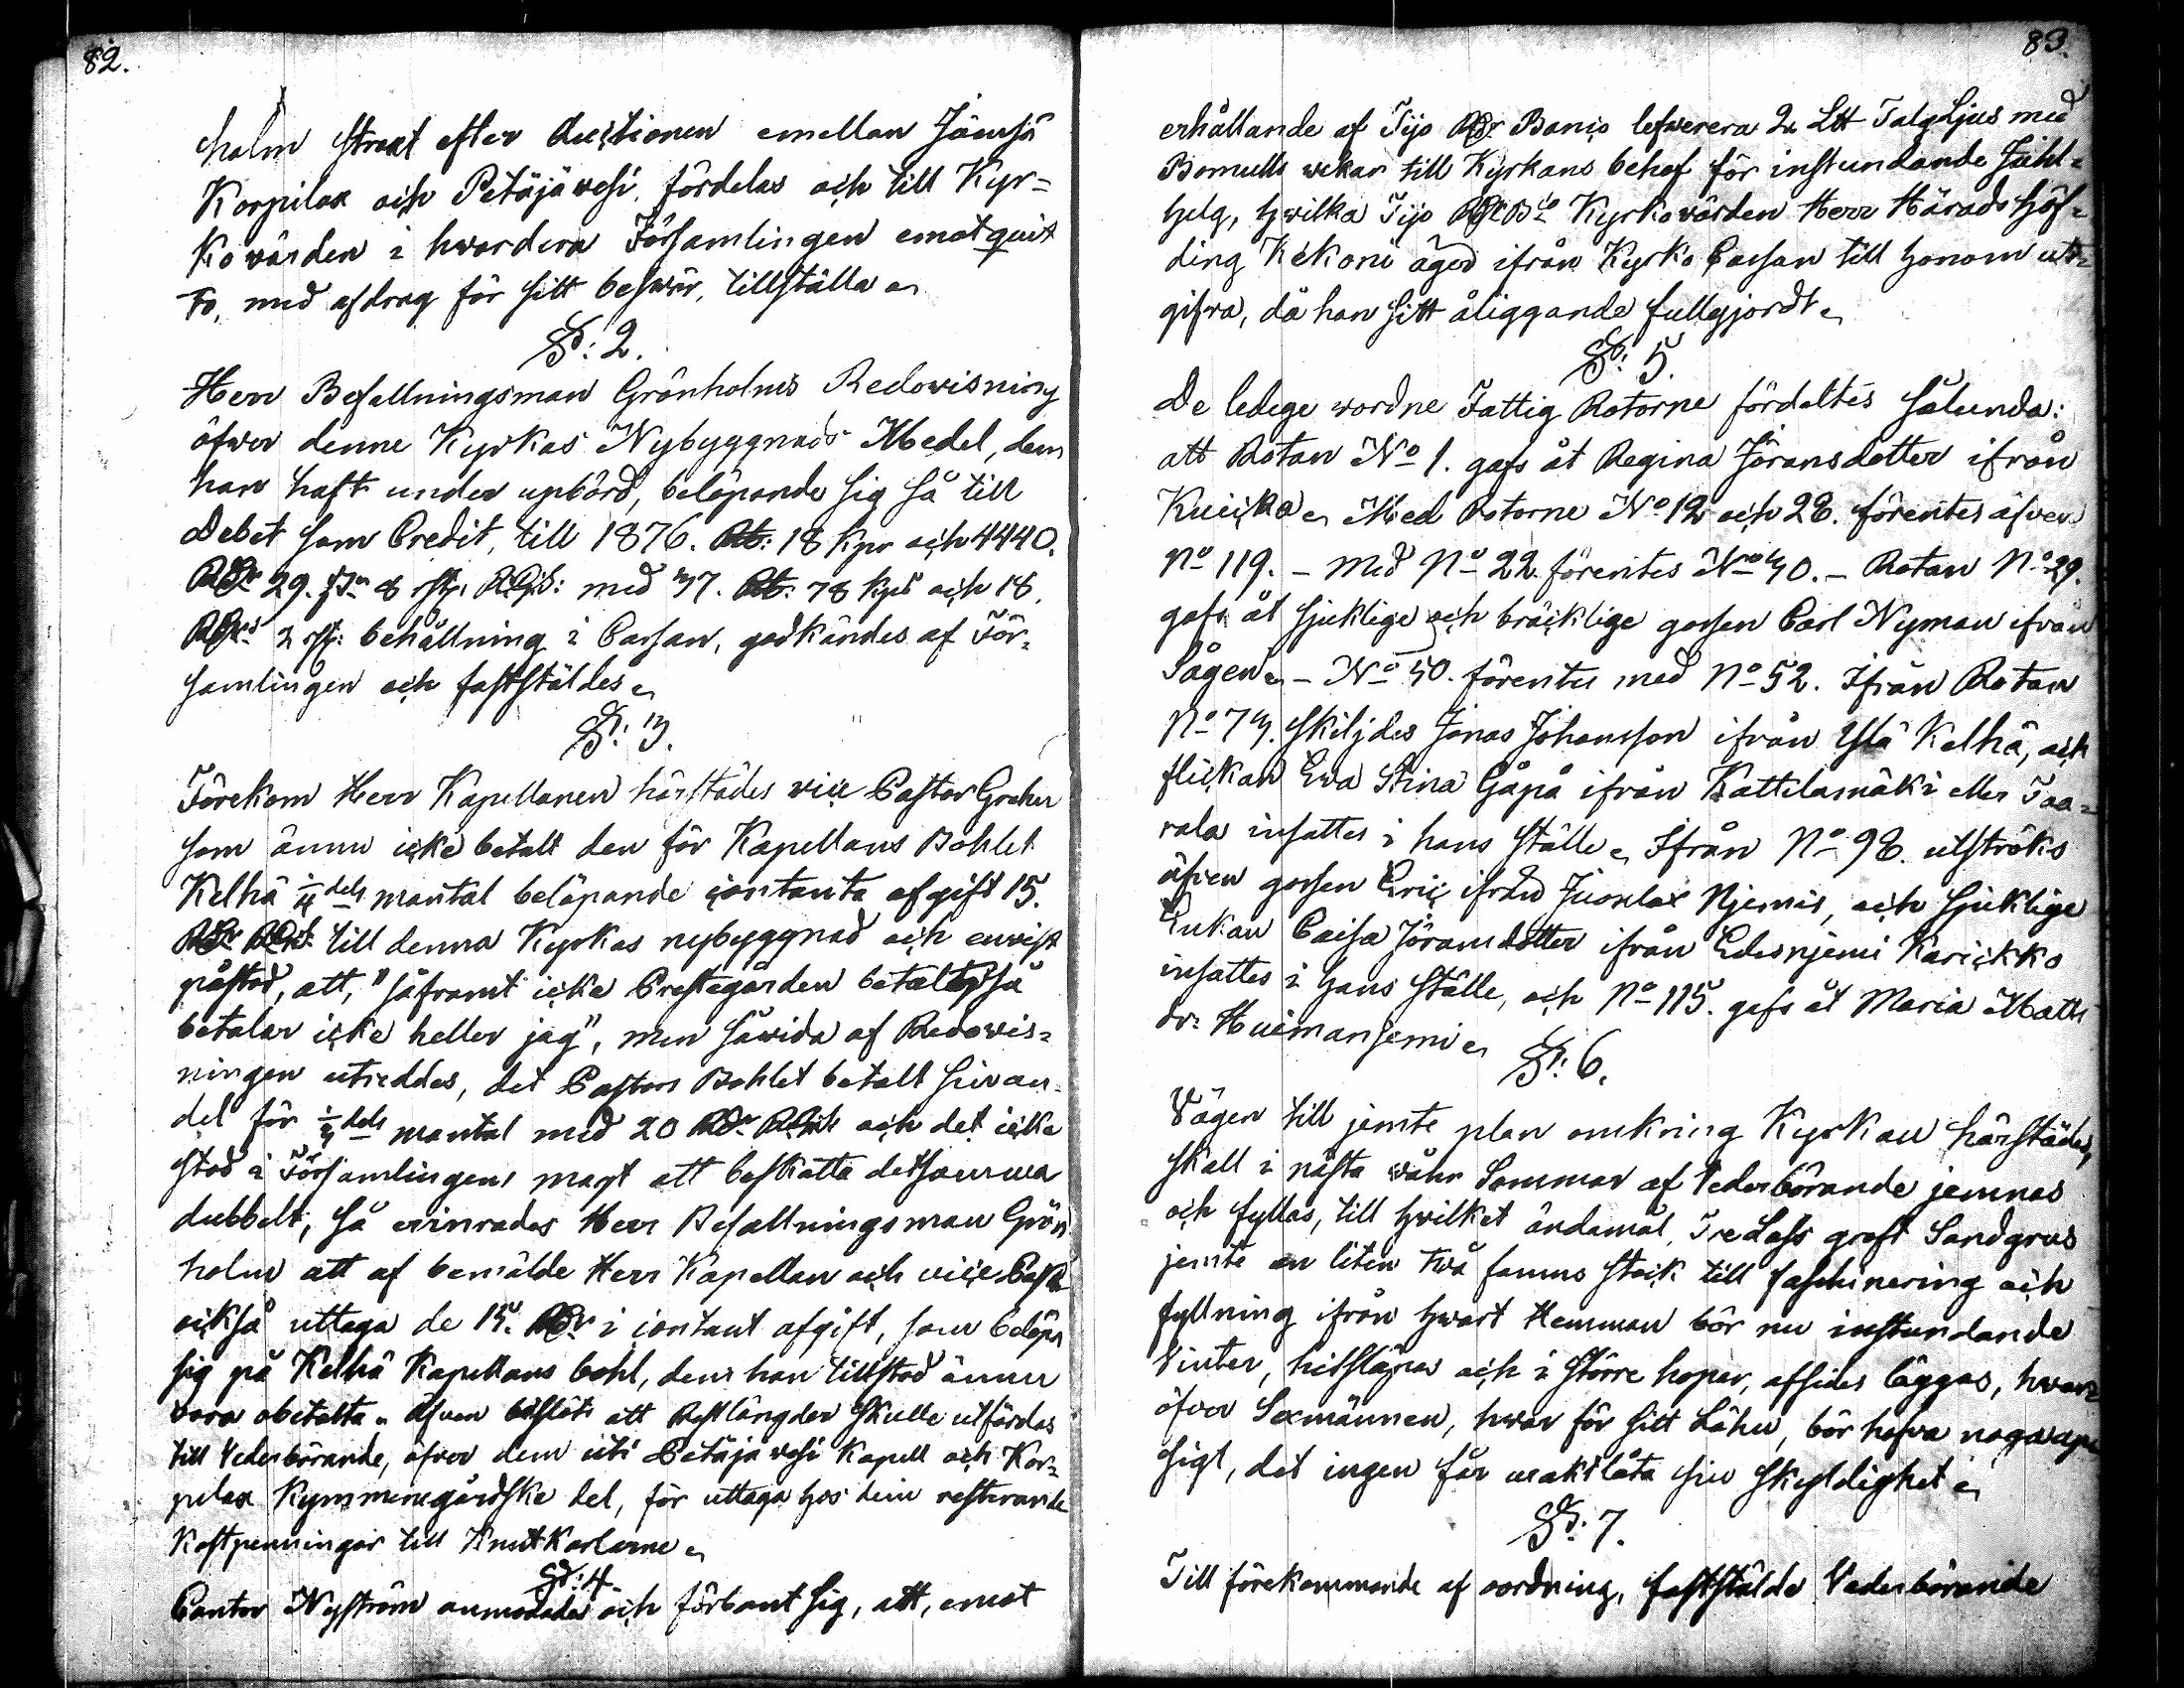 82.
holm straxt efter Auctionen emellan Jämsä
Korpilax och Petäjävesi, fördelas och till Kyr=
kovärden i hwardera Församlingen emot quit
to, med afdrag för sitt beswär, tillställa
§: 2.
Herr Befallningsman Grönholms Redowisning
öfwer denne Kyrkas Nybyggnads Medel, dem
han haft under upbörd, belöpande sig så till
Debet som Credit, till 1876. Rb: 18 Kpr och 4440.
RDr 29. 8 med 37. Rb. 78 Kps och 18.
2 behållning i Cassan, godkändes af För=
samlingen och fastställdes
§: 3.
Förekom Herr Kapellanen härstädes vice Pastor
som ännu icke betalt den för Kapellans Bohlet
Kelhä 1/4 dels mantal belöpande contanta afgift 15.
till denna Kyrkas nybyggnad och enwist
påstod, att, "såframt icke Prestegården betalt så
betalar icke heller jag", men såwida af Redowis=
ningen utreddes, det Pastors Bohlet betalt sin an=
del för dels mantal med 20 och det icke
stod i Församlingens magt att beskatta detsamma
dubbelt, så erinrades Herr Befallningsman Grön
holm att af bemälde Herr Kapellan och vice Past
också uttaga de 15. RDr i contant afgift, som belöpa
sig på Kelhä Kapellans bohl, dem han tillstod ännu
vara obetalta. Äfven beslöts att Restlängder skulle utfärdas
till Vederbörande, öfver dem uti Petäjävesi Kapell och Kor=
pilax Kymmenegårdske del, för uttaga hos dem resterande
Kostpenningar till Knutkarlarne
§: 4.
Cantor Nyström anmodades och förbant sig, att, emot
83.
erhållande af Tijo RDr Banco lefwerera 2 Ltt TalgLjus med
Bomulls wekar till Kyrkans behof för instundande Juhl=
helg, hwilka Tijo Kyrkowärden Herr Häradshöf=
ding Kekoni äger ifrån Kyrko Cassan till honom ut=
gifva, då han sitt åliggande fullgjordt
§: 5.
De ledege wordne Fattig Rotorne fördeltes sålunda:
att Rotan No 1. gafs åt Regina Jöransdotter ifrån
Kuicka Med Rotorne No 12 och 28. förentes äfven
No 119. – med No 22. förentes No 40. – Rotan No 29.
gafs åt sjuklige och bräcklige gossen Carl Nyman ifrån
Sågen – No 50. förentes med No 52. Ifrån Rotan
No 73. skiljdes Jonas Johansson ifrån Ylä Kelhä, och
flickan Ewa Stina Gåpå ifrån Kattilamäki eller Taa=
rala insattes i hans ställe Ifrån No 98. utströks
äfven gossen Eric ifrån Juoxlax Njemis, och sjuklige
Enkan Caisa Jöransdotter ifrån Edesnjemi Karickko
insattes i hans ställe, och No 115. gafs åt Maria Matts
dr Huimanjemi
§: 6.
Vägen till jemte plan omkring Kyrkan härstädes,
skall i nästa wåhr Sommar af Vederbörande jemnas
och fyllas, till hwilket ändamål, Tre Lass groft Sandgrus
jemte en liten två famns stock till faschinering och
fyllning ifrån hwart Hemman bör nu instundande
Vinter, hitsläpas och i större hopar, afsides läggas, hwar=
öfver Sexmännen, hwar för sitt Lähn, bör hafva noga up
sigt, det ingen får uraktlåta sin skyldighet
§: 7.
Till förekommande af oordning, fastställde Vederbörande